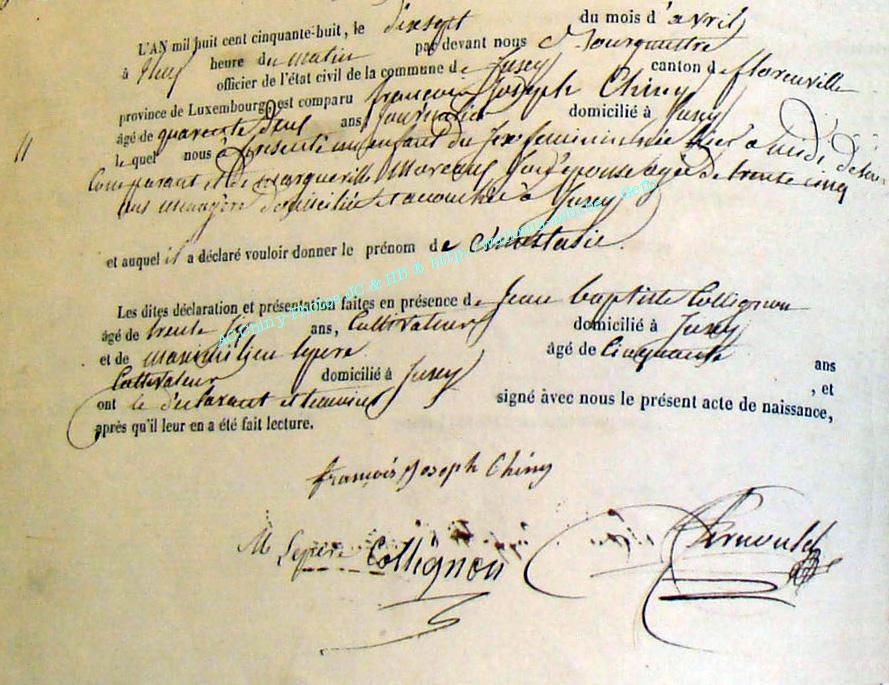 L'AN mil huit cent cinquante-huit, le dixsept du mois d'avril
à neuf heure du matin par devant nous
officier de l'état civil de la commune de Jusey canton de florenville
province de Luxembourg est comparu françois Joseph Chiny
âgé de quarente deux ans, Journalier domicilié à Jusey
11
le quel nous à présenté un enfant du sexe feminin née hier à midi de lui
Comparant et de margueritte son épouse agée de trente cinq
ans menagère domiciliée et accouchée à Jusey
et auquel il a déclaré vouloir donner le prénom de Anastasie.
Les dites déclaration et présentation faites en présence de Jean baptiste Collignon
âgé de trente ans, Cultivateur domicilié à Jusey
et de maximilien lepere âgé de Cinquante ans
Cultivateur domicilié à Jusey , et
ont le declarant et temoins signé avec nous le présent acte de naissance,
après qu'il leur en a été fait lecture.
françois Joseph Chiny
M Lepere Collignon